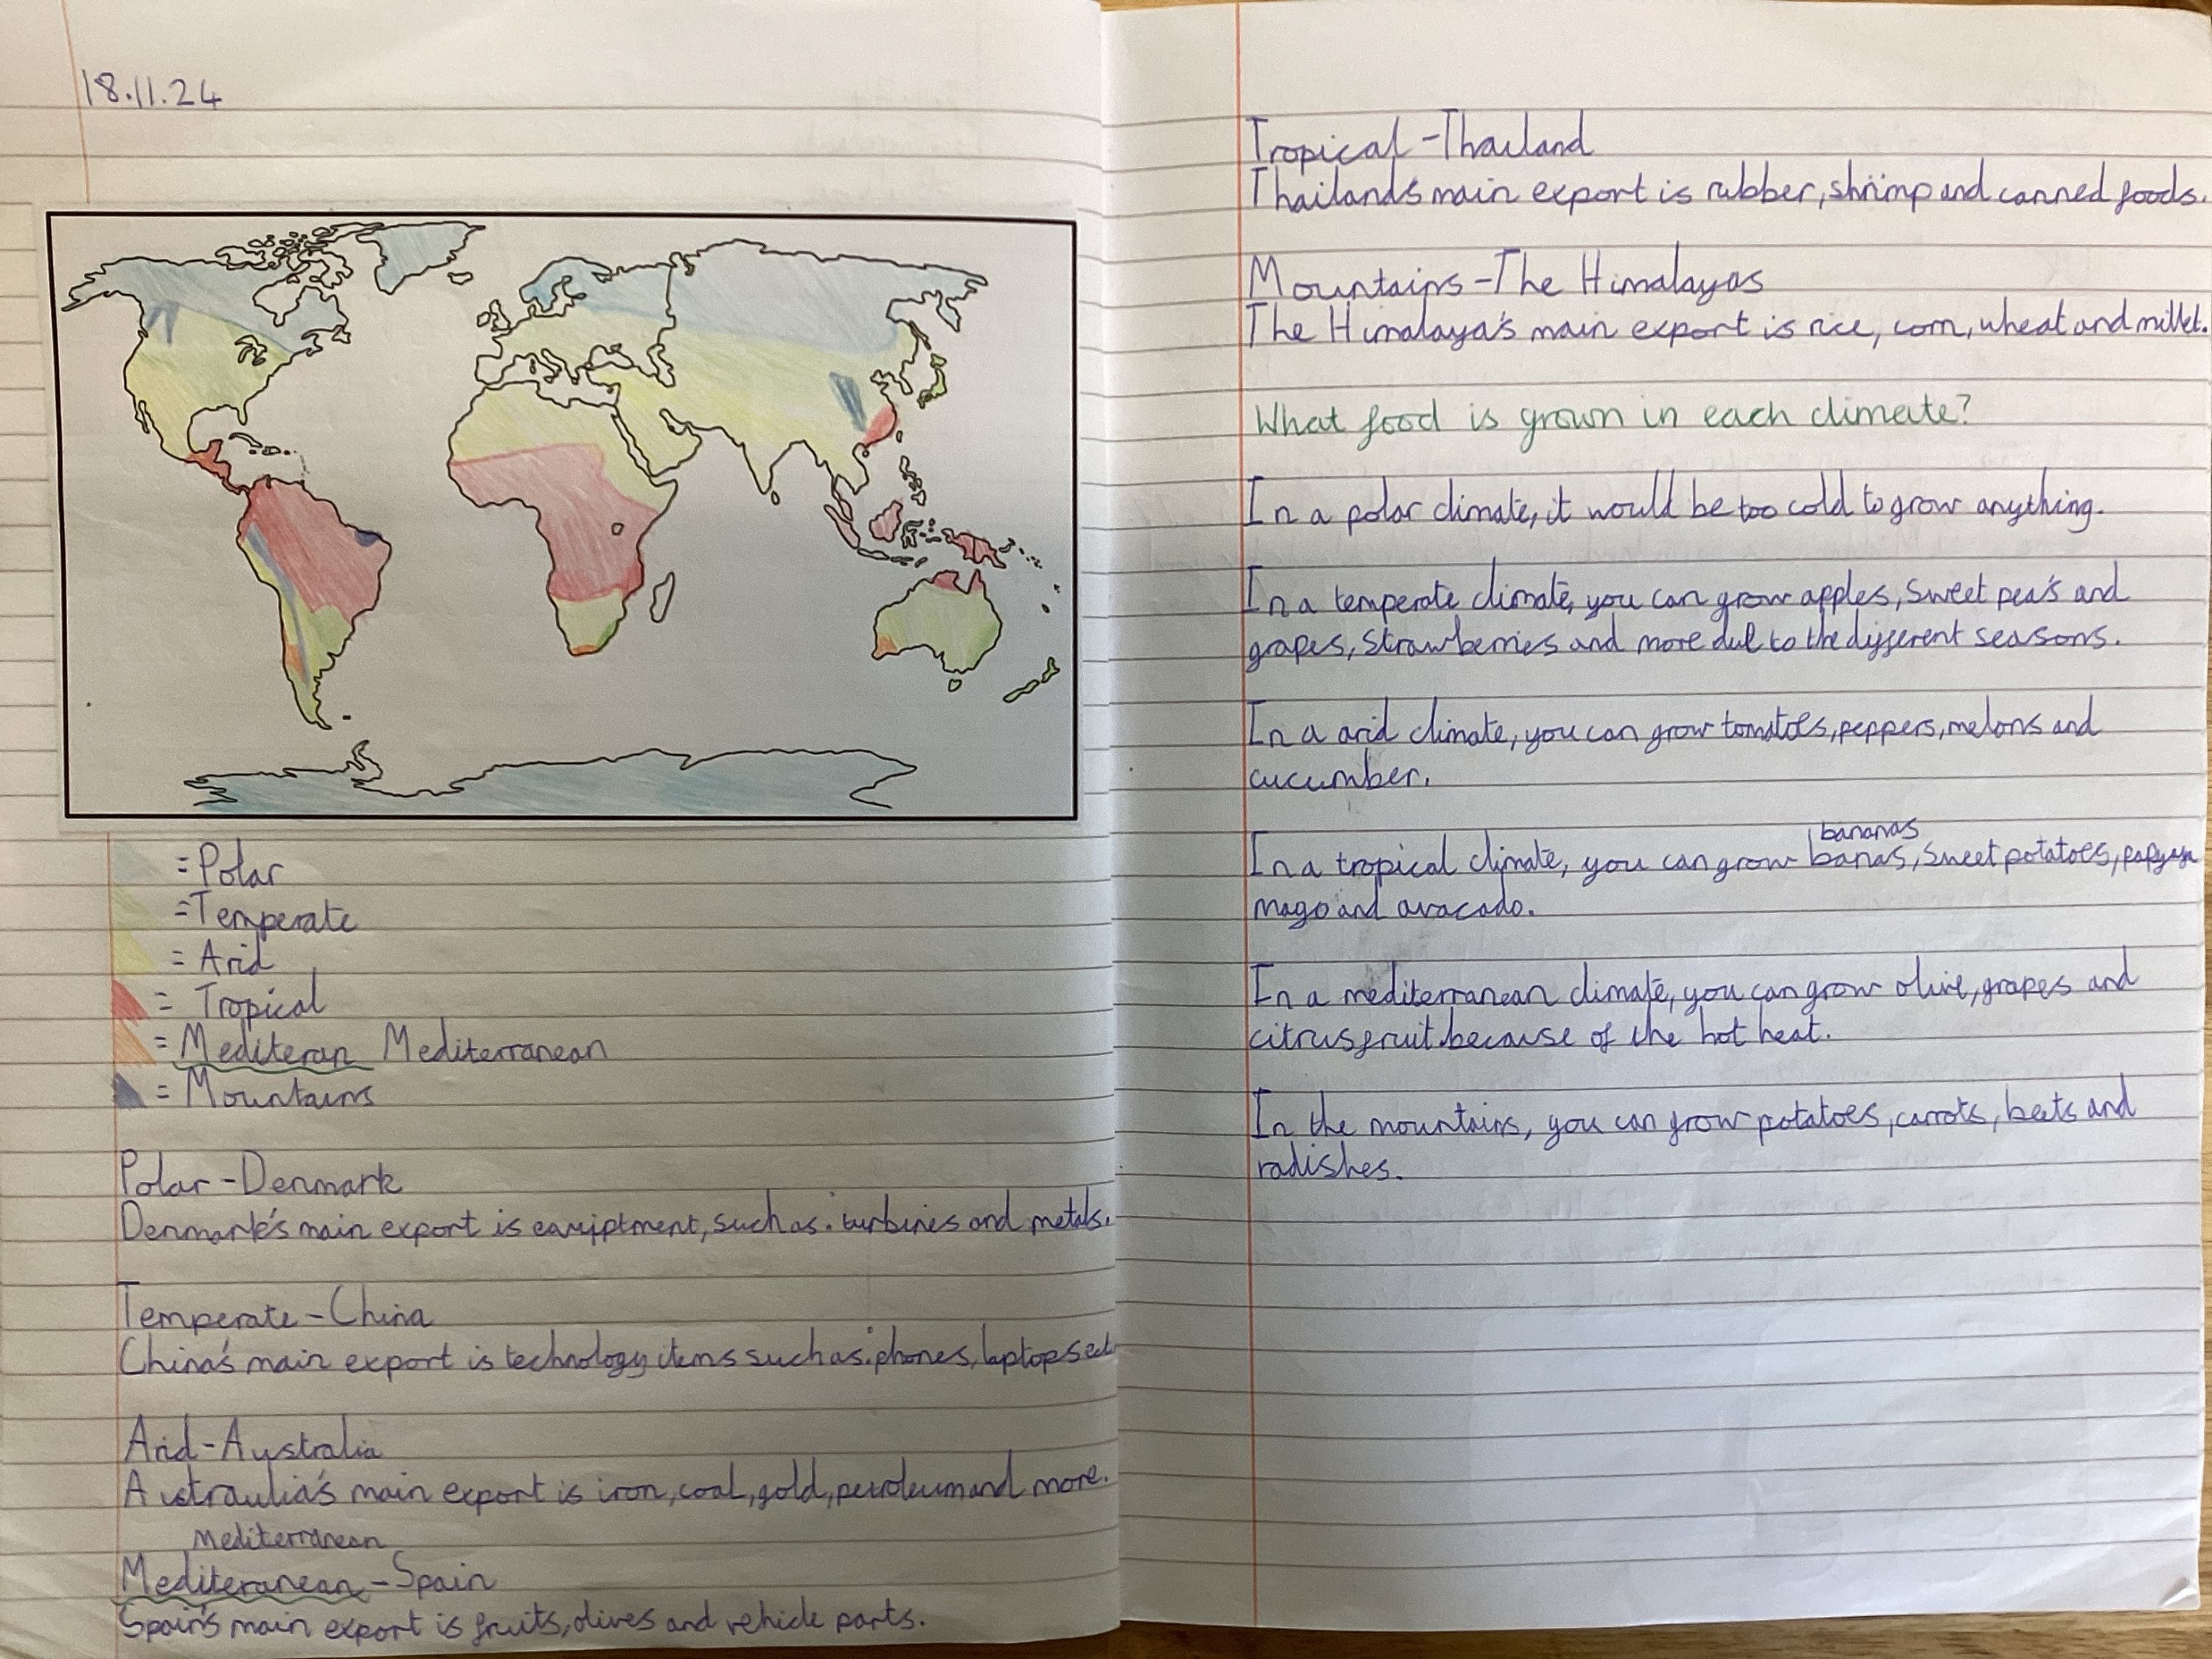 18.11.24
= Polar
= Temperate
= Arid
= Tropical
= Mediteran Mediterranean
= Mountains
Polar - Denmark
Denmark's main export is euqiptment, such as. turbines and metals.
Temperate - China
China's main export is technology items such as. phones, laptops ect.
Arid - Australia
Austraulia's main export is iron, coal, gold, petroleum and more.
Mediterranean
Mediteranean - Spain
Spain's main export is fruits, olives and vehicle parts.
Tropical - Thailand
Thailand's main export is rubber, shrimp and canned foods.
Mountains - The Himalayas
The Himalaya's main export is rice, corn, wheat and millet.
What food is grown in each climate?
In a polar climate, it would be too cold to grow anything.
In a temperate climate, you can grow apples, sweet pea's and
grapes, strawberries and more due to the different seasons.
In a arid climate, you can grow tomatoes, peppers, melons and
cucumber.
bananas
In a tropical climate, you can grow banas, sweet potatoes,
mago and avacado.
In a mediterranean climate, you can grow olive, grapes and
citrus fruit because of the hot heat.
In the mountains, you can grow potatoes, carrots, beets and
radishes.